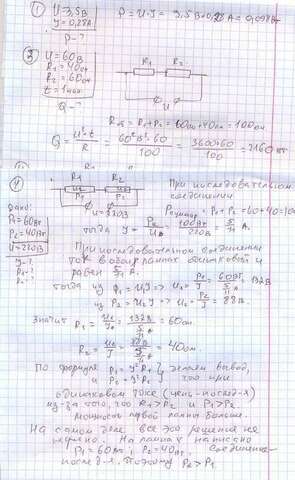 ① U=3,5В
Y=0,28А
P-?
P=U·Y=3,5В·0,28А=0,098Вт
② U=60В
R₁=40ом
R₂=60ом
t=1мин
Q-?
R₁ R₂
U
Rоб=R₁+R₂=60ом+40ом=100ом
Q=U²·t/R=60²В²·60/100=3600·60/100=2160
R₁ R₂
U₁ U₂
U=220В
Дано:
P₁=60Вт
P₂=40Вт
U=220В
Y-?
R₁-?
R₂-?
При последовательном
соединении
= P₁+P₂=60+40=10
тогда Y= = 100Вт/220В = 5/11 А.
При последовательном соединении
ток в обоих лампах одинаковый и
равен 5/11 А.
тогда из P₁=U₁Y => U₁=P₁/Y=60Вт/5/11=132В
из P₂=U₂Y => U₂=P₂/Y=88В.
значит R₁=U₁/Y=132В/5/11= ом.
R₂=U₂/Y=88В/5/11= ом.
По формуле P₁=Y²R₁ делаем вывод,
и P₂=Y²R₂ что при
одинаковом токе (цепь-послед-я)
из-за того, что R₁>R₂ и P₁>P₂
мощность первой лампы больше.
На самом деле все это решение не
нужно. На лампах написано
P₁=60Вт; P₂=40Вт. Соединение
послед-я. Поэтому P₂>P₁